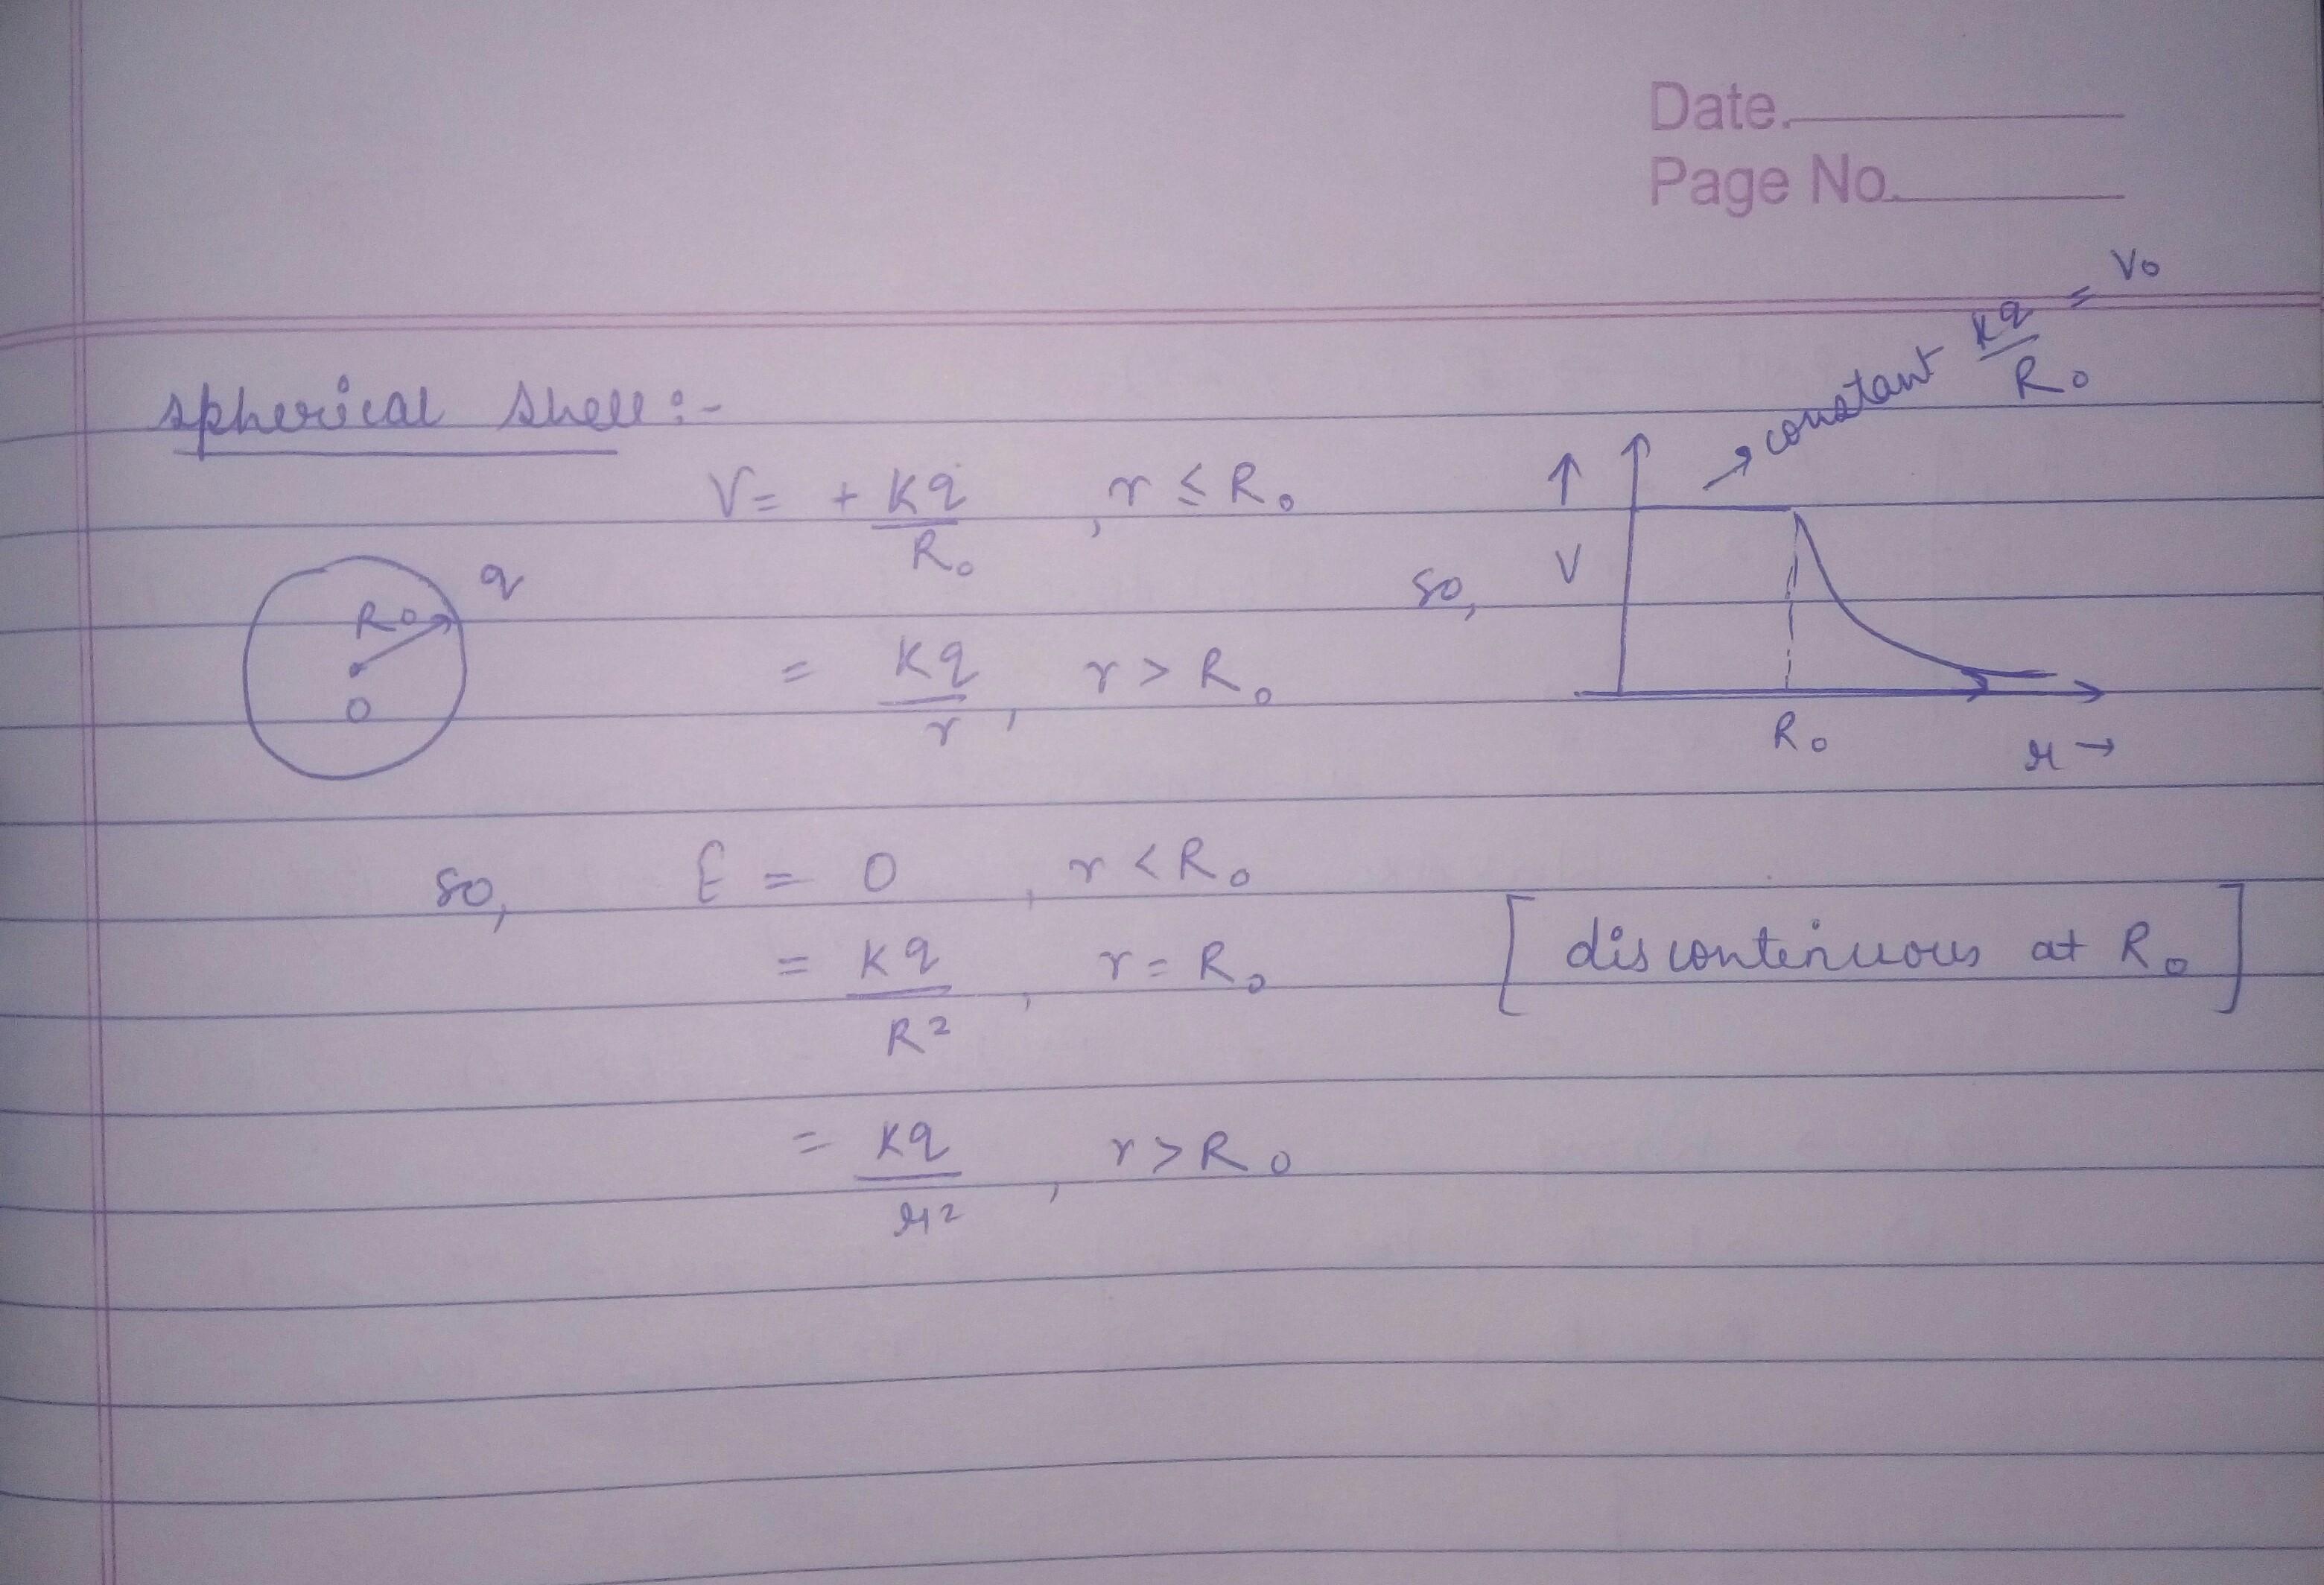 Date.
Page No.
spherical shell :-
V = + Kq/R₀ , r ≤ R₀
= Kq/r , r > R₀
q
R₀
O
so,
→ constant Kq/R₀ = V₀
↑
V
R₀
r →
so, E = 0 , r < R₀
= Kq/R² , r = R₀ [ discontenuous at R₀ ]
= Kq/r² , r > R₀